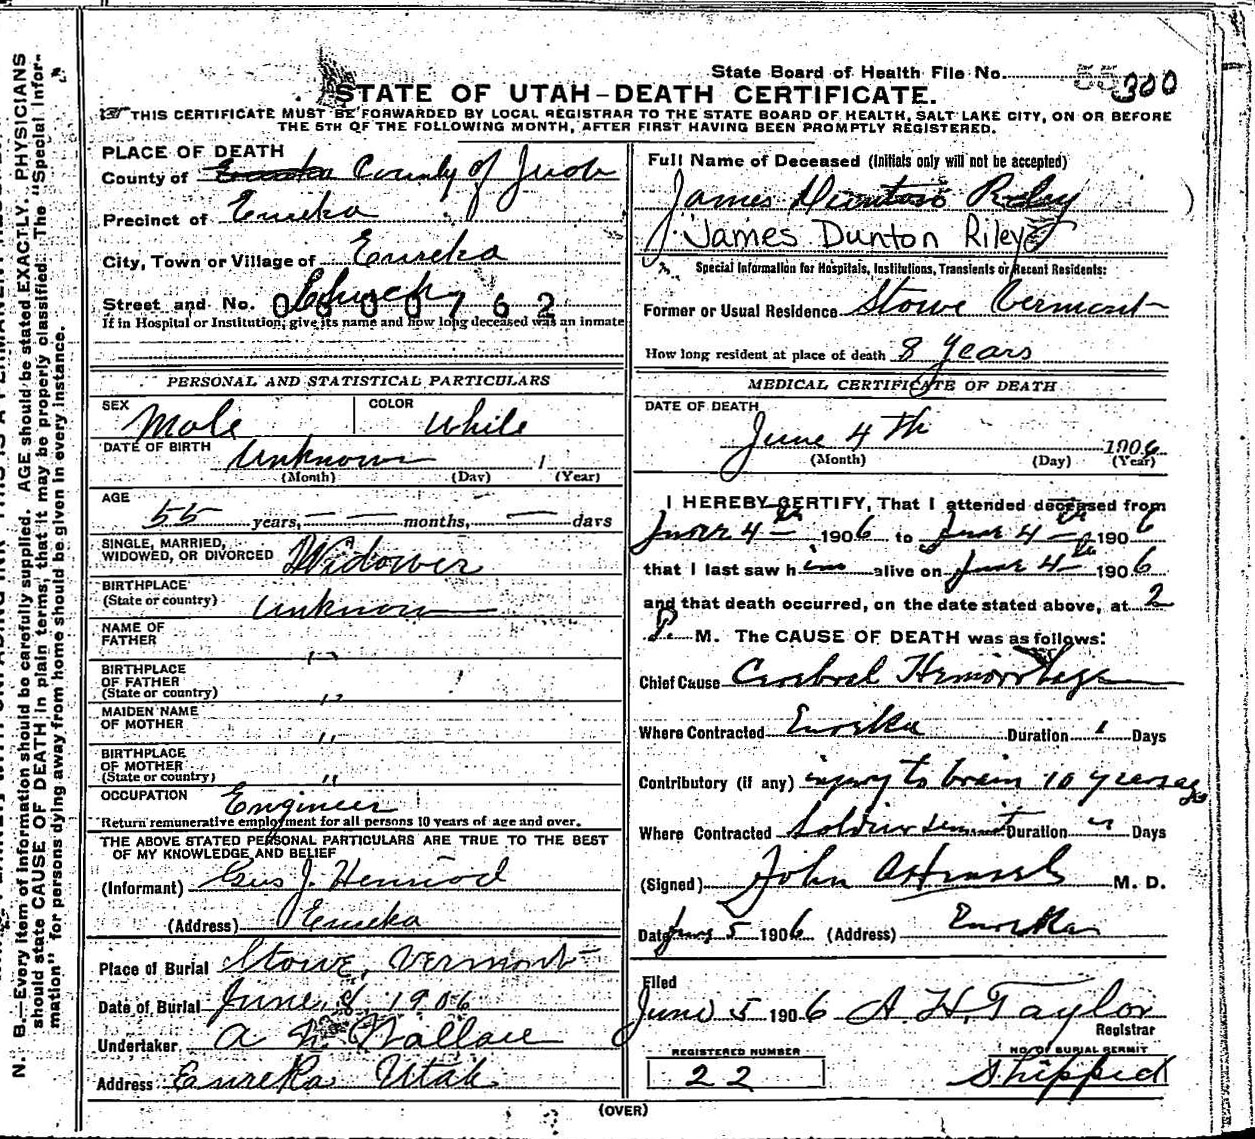 State Board of Health File No. 55 300
STATE OF UTAH-DEATH CERTIFICATE.
THIS CERTIFICATE MUST BE FORWARDED BY LOCAL REGISTRAR TO THE STATE BOARD OF HEALTH, SALT LAKE CITY, ON OR BEFORE
THE 5TH OF THE FOLLOWING MONTH, AFTER FIRST HAVING BEEN PROMPTLY REGISTERED.
PLACE OF DEATH
County of Eureka County of Juab
Precinct of Eureka
City, Town or Village of Eureka
Street and No. Church 0600762
If in Hospital or Institution, give its name and how long deceased was an inmate
PERSONAL AND STATISTICAL PARTICULARS
SEX Male COLOR White
DATE OF BIRTH Unknown 1
(Month) (Day) (Year)
AGE
55 years, — — months, — days
SINGLE, MARRIED,
WIDOWED, OR DIVORCED Widower
BIRTHPLACE
(State or country) Unknown
NAME OF
FATHER "
BIRTHPLACE
OF FATHER
(State or country) "
MAIDEN NAME
OF MOTHER "
BIRTHPLACE
OF MOTHER
(State or country) "
OCCUPATION Engineer
Return remunerative employment for all persons 10 years of age and over.
THE ABOVE STATED PERSONAL PARTICULARS ARE TRUE TO THE BEST
OF MY KNOWLEDGE AND BELIEF
(Informant) Gus J. Henriod
(Address) Eureka
Place of Burial Stowe, Vermont
Date of Burial June 8, 1906
Undertaker A N Wallace
Address Eureka Utah
Full Name of Deceased (Initials only will not be accepted)
James Riley
James Dunton Riley
Special Information for Hospitals, Institutions, Transients or Recent Residents:
Former or Usual Residence Stowe Vermont
How long resident at place of death 8 Years
MEDICAL CERTIFICATE OF DEATH
DATE OF DEATH
June 4 Th 1906
(Month) (Day) (Year)
I HEREBY CERTIFY, That I attended deceased from
June 4th 1906 to June 4th 1906
that I last saw him alive on June 4th 1906
and that death occurred, on the date stated above, at 2
P. M. The CAUSE OF DEATH was as follows:
Chief Cause Cerebral Hemorrhage
Where Contracted Eureka Duration 1 Days
Contributory (if any) injury to brain 10 years ago
Where Contracted Duration " Days
(Signed) John M. D.
Date June 5 1906 (Address) Eureka
Filed
June 5 1906 A. H. Taylor
Registrar
REGISTERED NUMBER
22
NO. OF BURIAL PERMIT
Shipped
(OVER)
N. B.—Every item of information should be carefully supplied. AGE should be stated EXACTLY. PHYSICIANS
should state CAUSE OF DEATH in plain terms, that it may be properly classified. The "Special Infor-
mation" for persons dying away from home should be given in every instance.